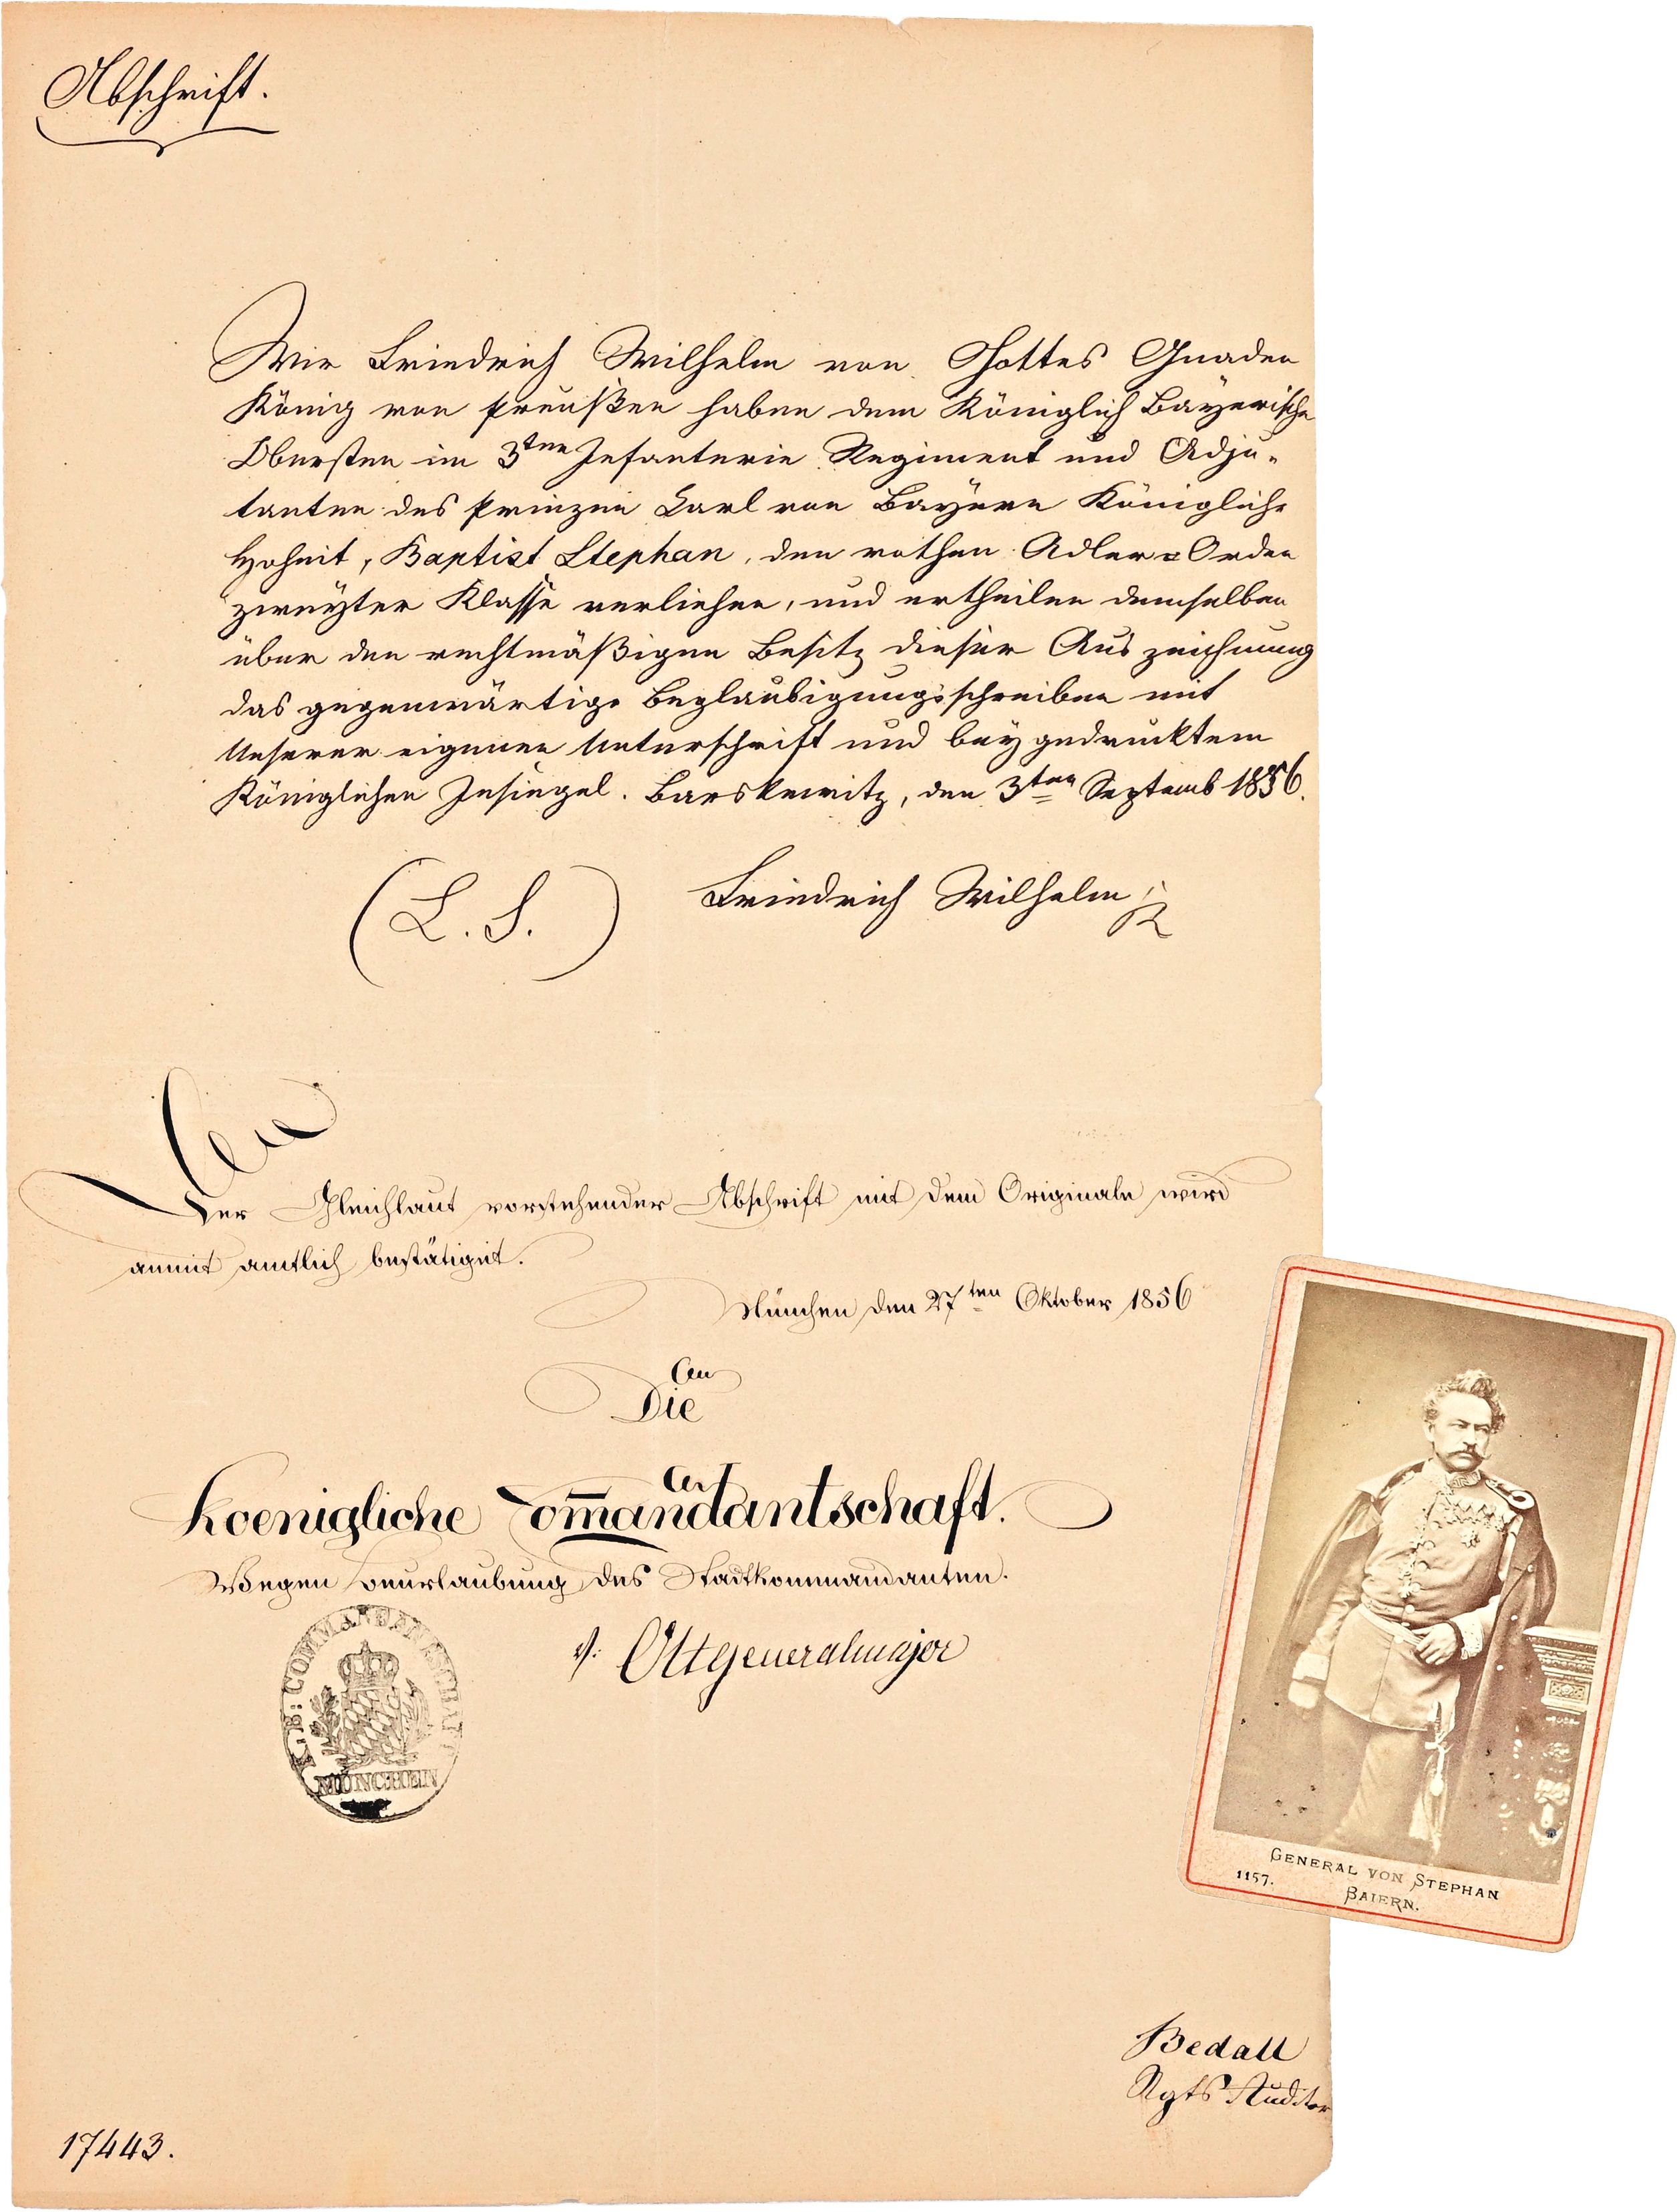 Abschrift.
Wir Friedrich Wilhelm von Gottes Gnaden
König von Preußen haben dem Königlich Bayerische
Obersten im 3ten Infanterie Regiment und Adju-
tanten des Prinzen Carl von Bayern Königliche
Hoheit, Baptist Stephan, den rothen Adler=Orden
zweyter Klasse verliehen, und ertheilen demselben
über den rechtmäßigen Besitz dieser Auszeichnung
das gegenwärtige Beglaubigungsschreiben mit
Unserer eigenen Unterschrift und beygedrucktem
Königlichen Insiegel. Barskewitz, den 3ten Septemb 1856.
(L. S.) Friedrich Wilhelm
Der Gleichlaut vorstehender Abschrift mit dem Originale wird
anmit amtlich bestätiget.
München den 27ten Oktober 1856
Die
Koenigliche Com̄andantschaft.
Wegen Beurlaubung des Stadtkommandanten.
v: Ott Generalmajor
K: B: COMMANDANTSCHAFT
MÜNCHEN
GENERAL VON STEPHAN
1157. BAIERN.
Bedall
Rgts Auditor
17443.